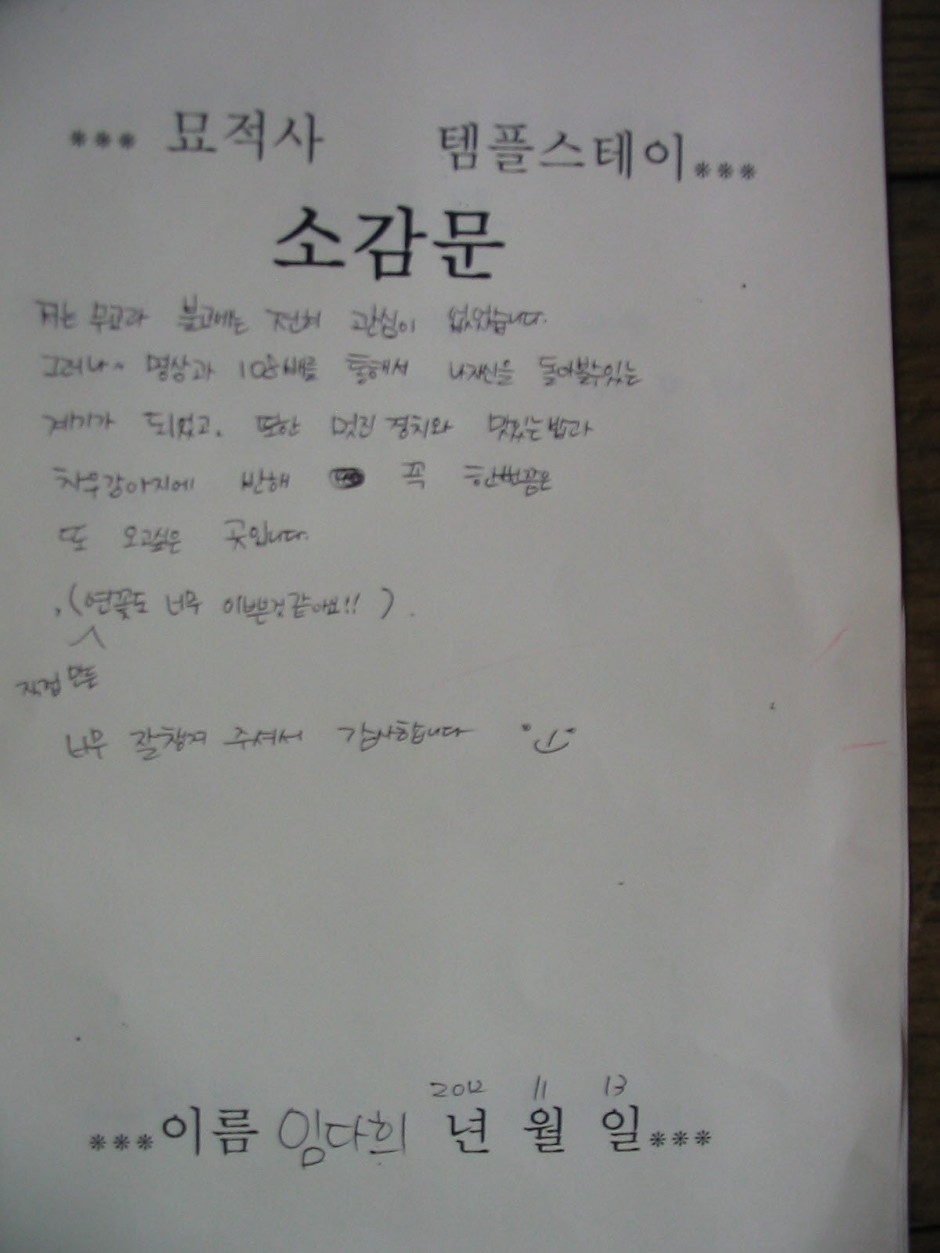 *** 묘적사 템플스테이***
소감문
저는 무교라 불교에는 전혀 관심이 없었습니다.
그러나~ 명상과 108배를 통해서 내자신을 돌아볼수있는
계기가 되었고, 또한 멋진 경치와 맛있는밥과
차우강아지에 반해 꼭 한번쯤은
또 오고싶은 곳입니다.
,(연꽃도 너무 이쁜것같아요!! ).
직접 만든
너무 잘챙겨 주셔서 감사합니다
2012 11 13
***이름 임다희 년 월 일***